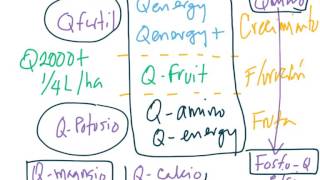 Q fertil
Qenergy
Qenergy+
Crecimiento
Q2000+
1/4L/ha
Q-fruit
Floración
Q-Potasio
Q-amino
Q-energy
Fruta
Q-magnesio
Q-calcio
Fosfo-Q